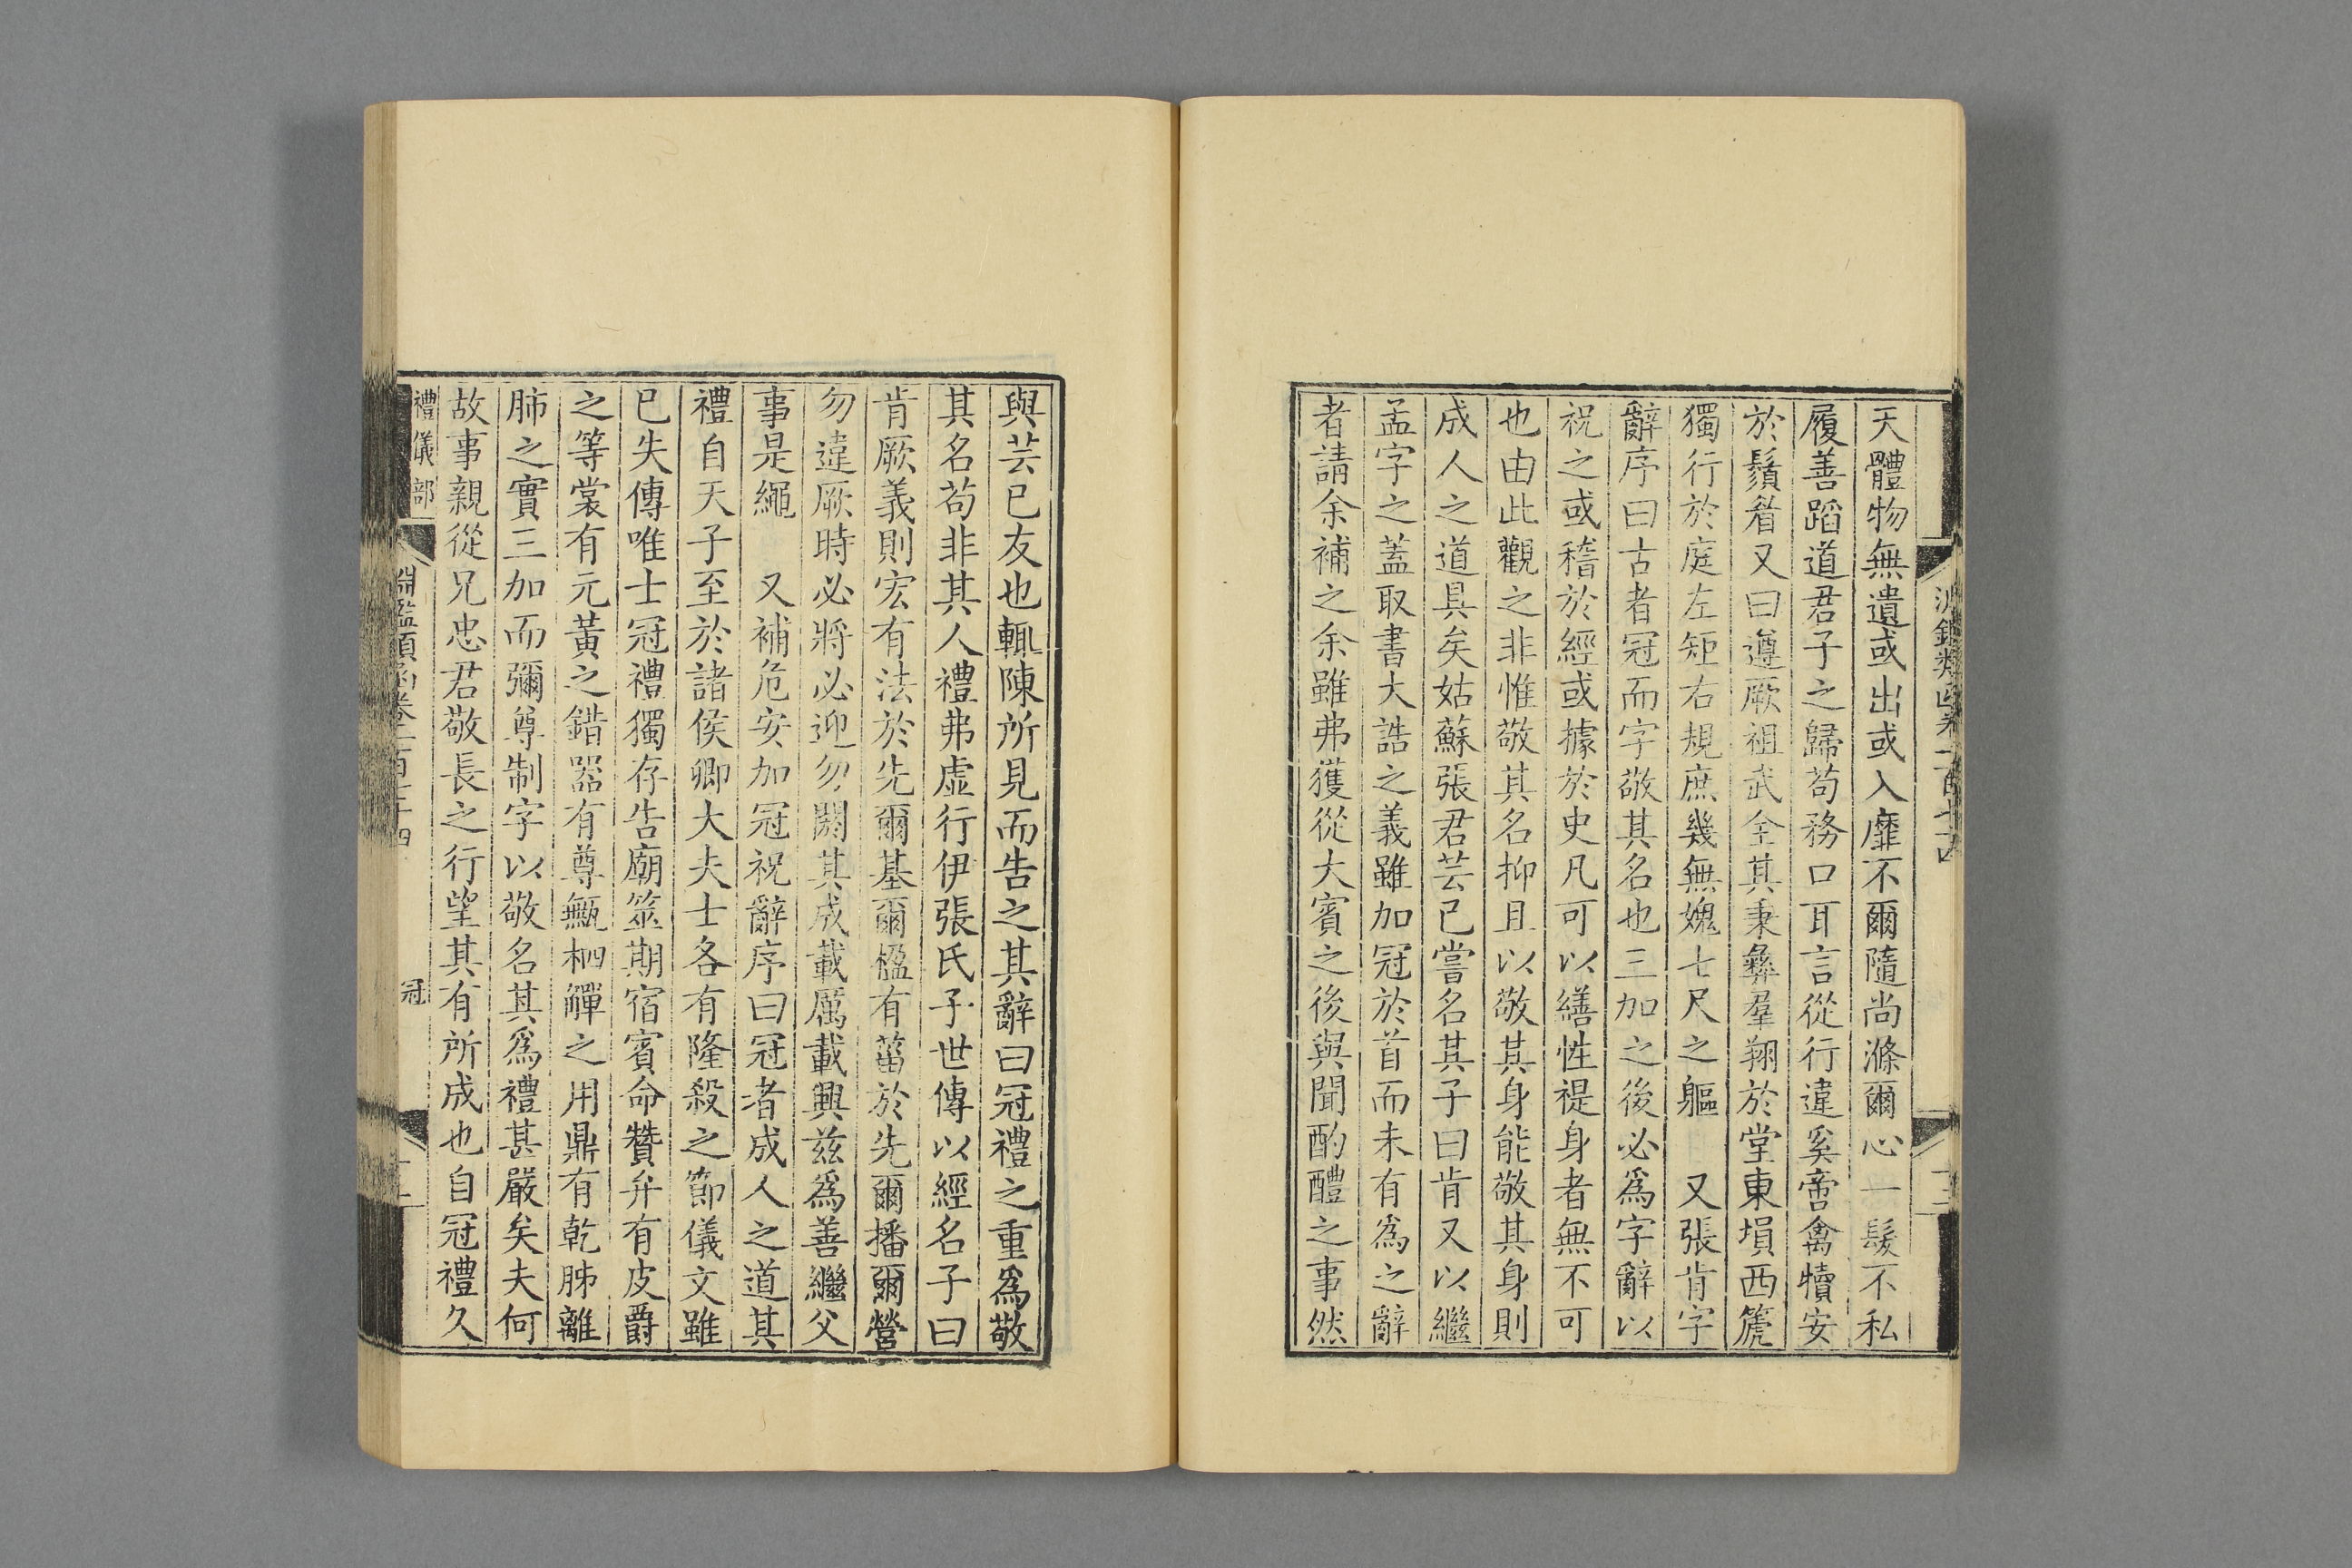 天體物無遺或出或入靡不爾隨尚滌爾心一髮不私
履善蹈道君子之歸苟務口耳言從行違奚啻禽犢安
於鬚眉又曰遵厥祖武全其秉彝羣翔於堂東塤西篪
獨行於庭左矩右規庶幾無媿七尺之軀　又張肯字
辭序曰古者冠而字敬其名也三加之後必爲字辭以
祝之或稽於經或據於史凡可以繕性禔身者無不可
也由此觀之非惟敬其名抑且以敬其身能敬其身則
成人之道具矣姑蘇張君芸己嘗名其子曰肯又以繼
孟字之蓋取書大誥之義雖加冠於首而未有爲之辭
者請余補之余雖弗獲從大賓之後與聞酌醴之事然
與芸已友也輒陳所見而告之其辭曰冠禮之重爲敬
其名苟非其人禮弗虛行伊張氏子世傳以經名子曰
肯厥義則宏有法於先爾基爾楹有菑於先爾播爾營
勿違厥時必將必迎勿闕其成載厲載興兹爲善繼父
事是繩　又補危安加冠祝辭序曰冠者成人之道其
禮自天子至於諸侯卿大夫士各有隆殺之節儀文雖
已失傳唯士冠禮獨存告廟筮期宿賓命贊弁有皮爵
之等裳有元黃之錯器有尊甒柶觶之用鼎有乾肺離
肺之實三加而彌尊制字以敬名其爲禮甚嚴矣夫何
故事親從兄忠君敬長之行望其有所成也自冠禮久
禮儀部
淵鑑類函卷一百七十四
冠